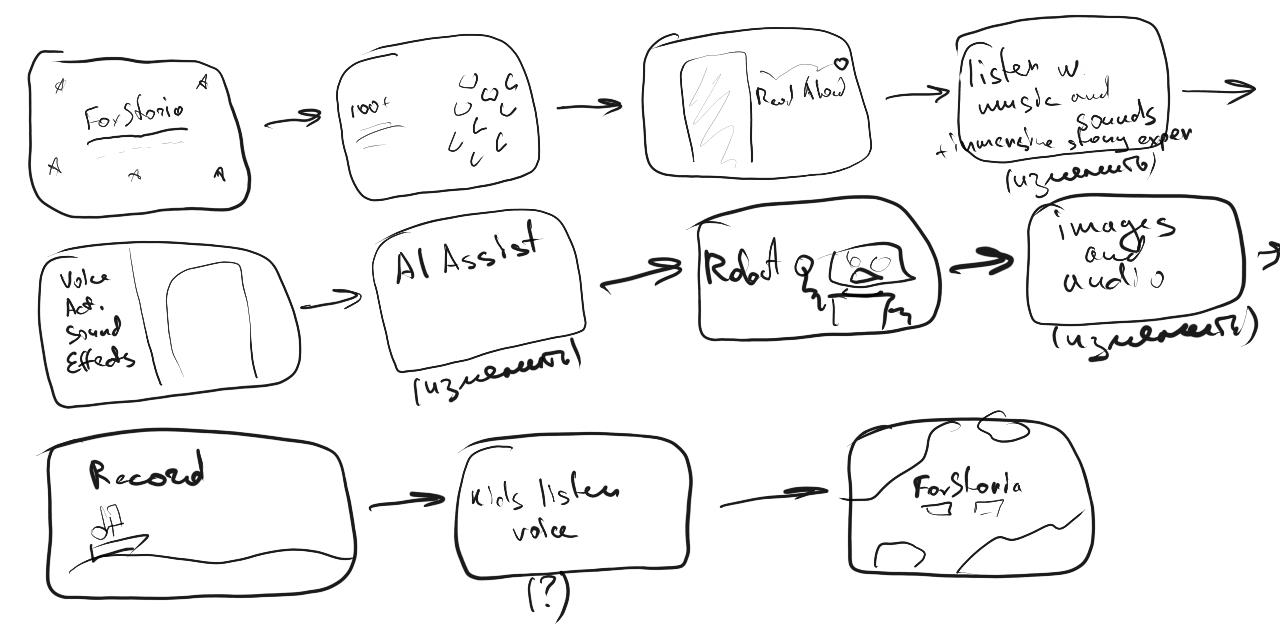 ForStoria
100+
Read Aloud
listen w.
music and
sounds
+ immersive story exper
(изменить)
Voice
Act.
Sound
Effects
AI Assist
(изменить)
Robot
images
and
audio
(изменить)
Record
Kids listen
voice
(?)
ForStoria